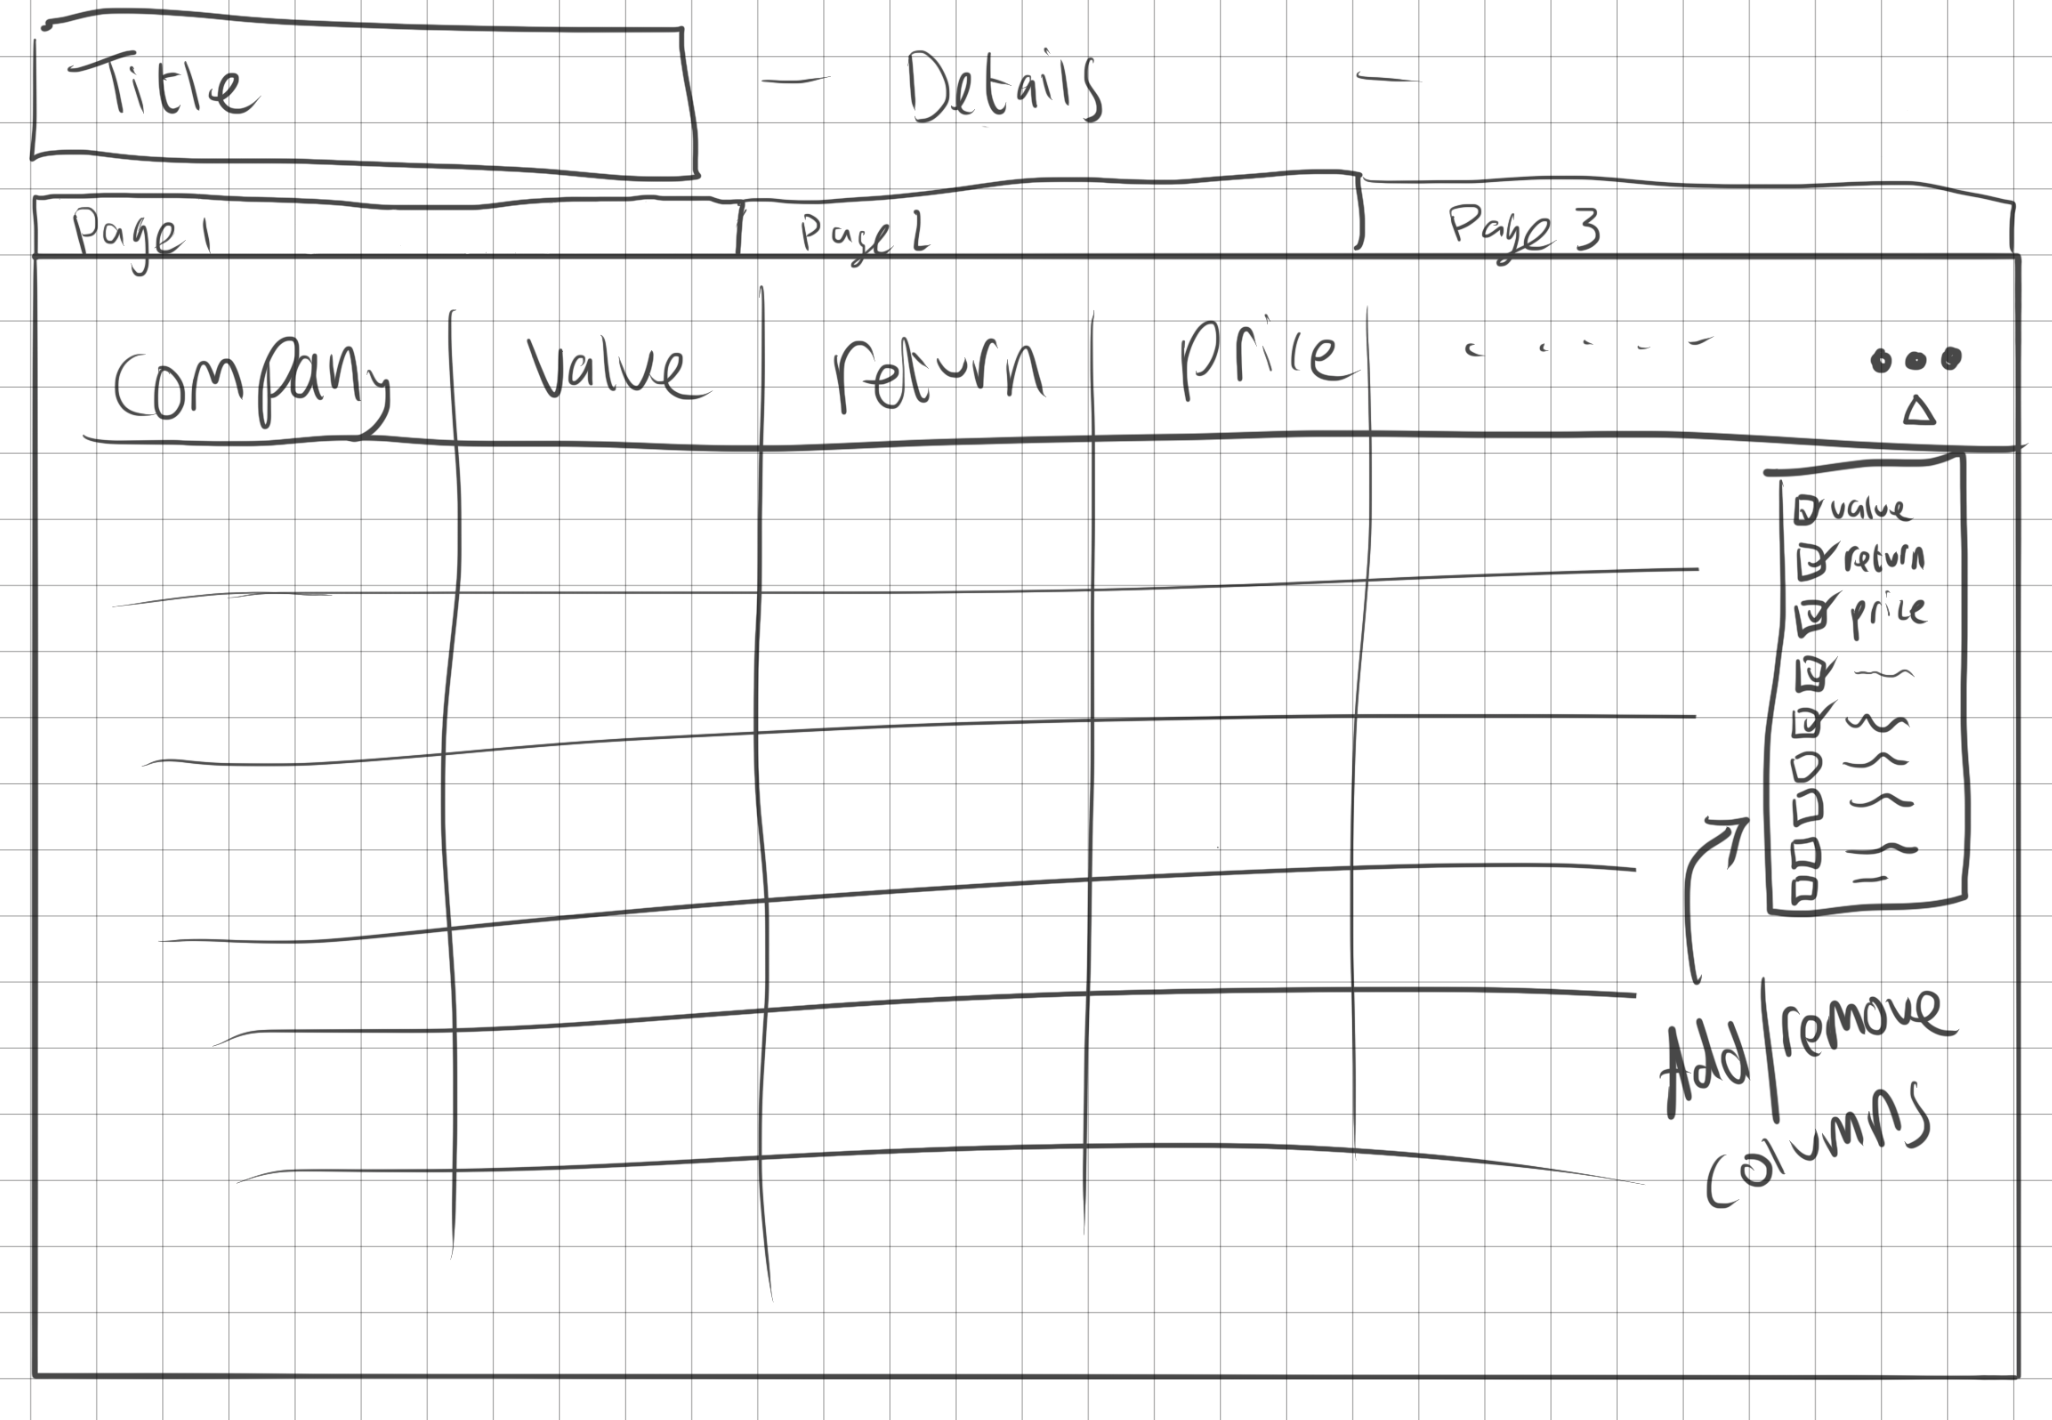 Title
— Details —
Page 1
Page 2
Page 3
Company
Value
return
price
value
return
price
Add/remove
columns